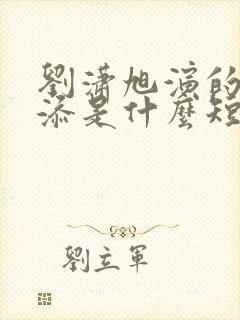 劉瀟旭演的
添是什麼短
劉立軍